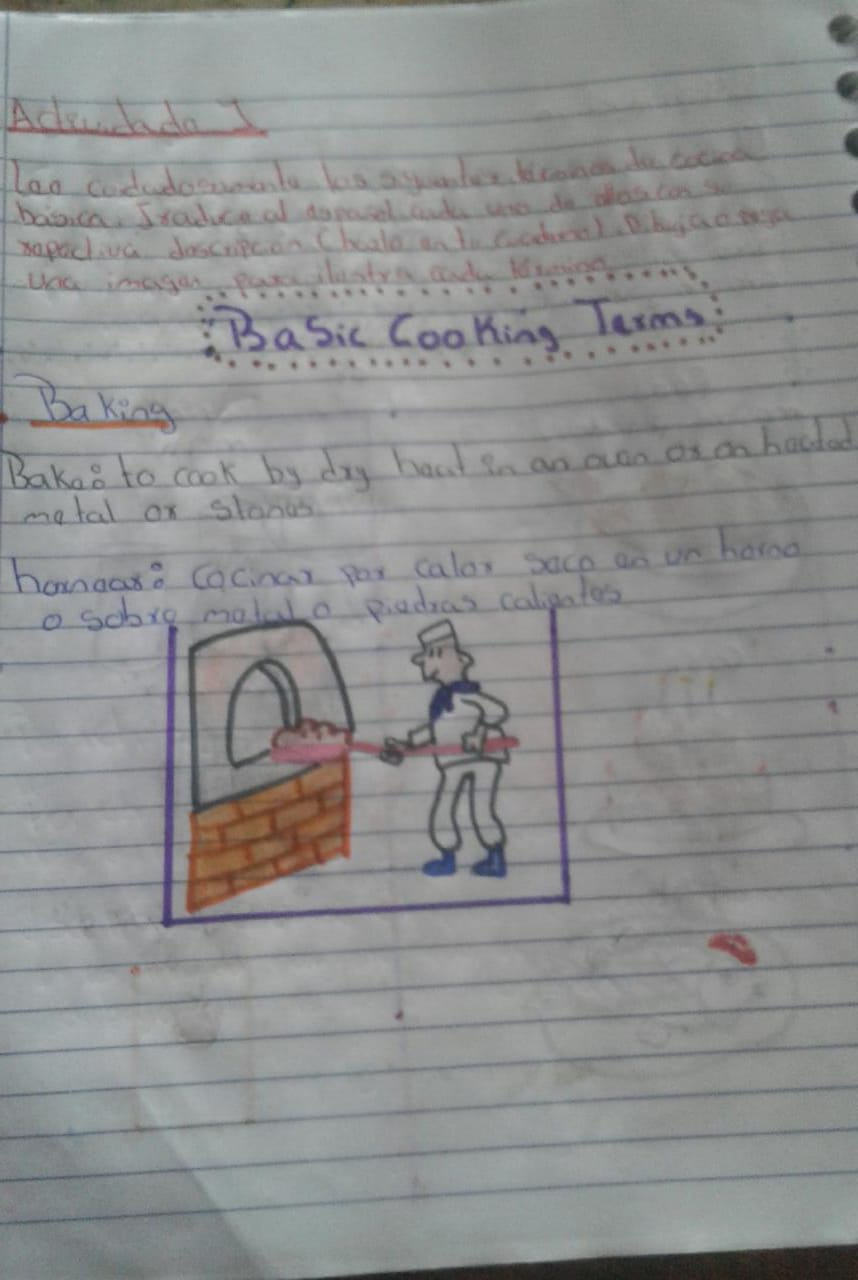 Actividado I
Lea cuidadosamente los siguientes términos de cocina
básica. Traduce al español cada uno de ellos con su
respectiva descripción (hazlo en tu cuaderno). Dibuja o pega
una imagen para ilustra cada término
Basic Cooking Terms
Baking
Bake: to cook by dry heat in an oven or on heated
metal or stones
hornear: Cocinar por calor seco en un horno
o sobre metal o piedras calientes